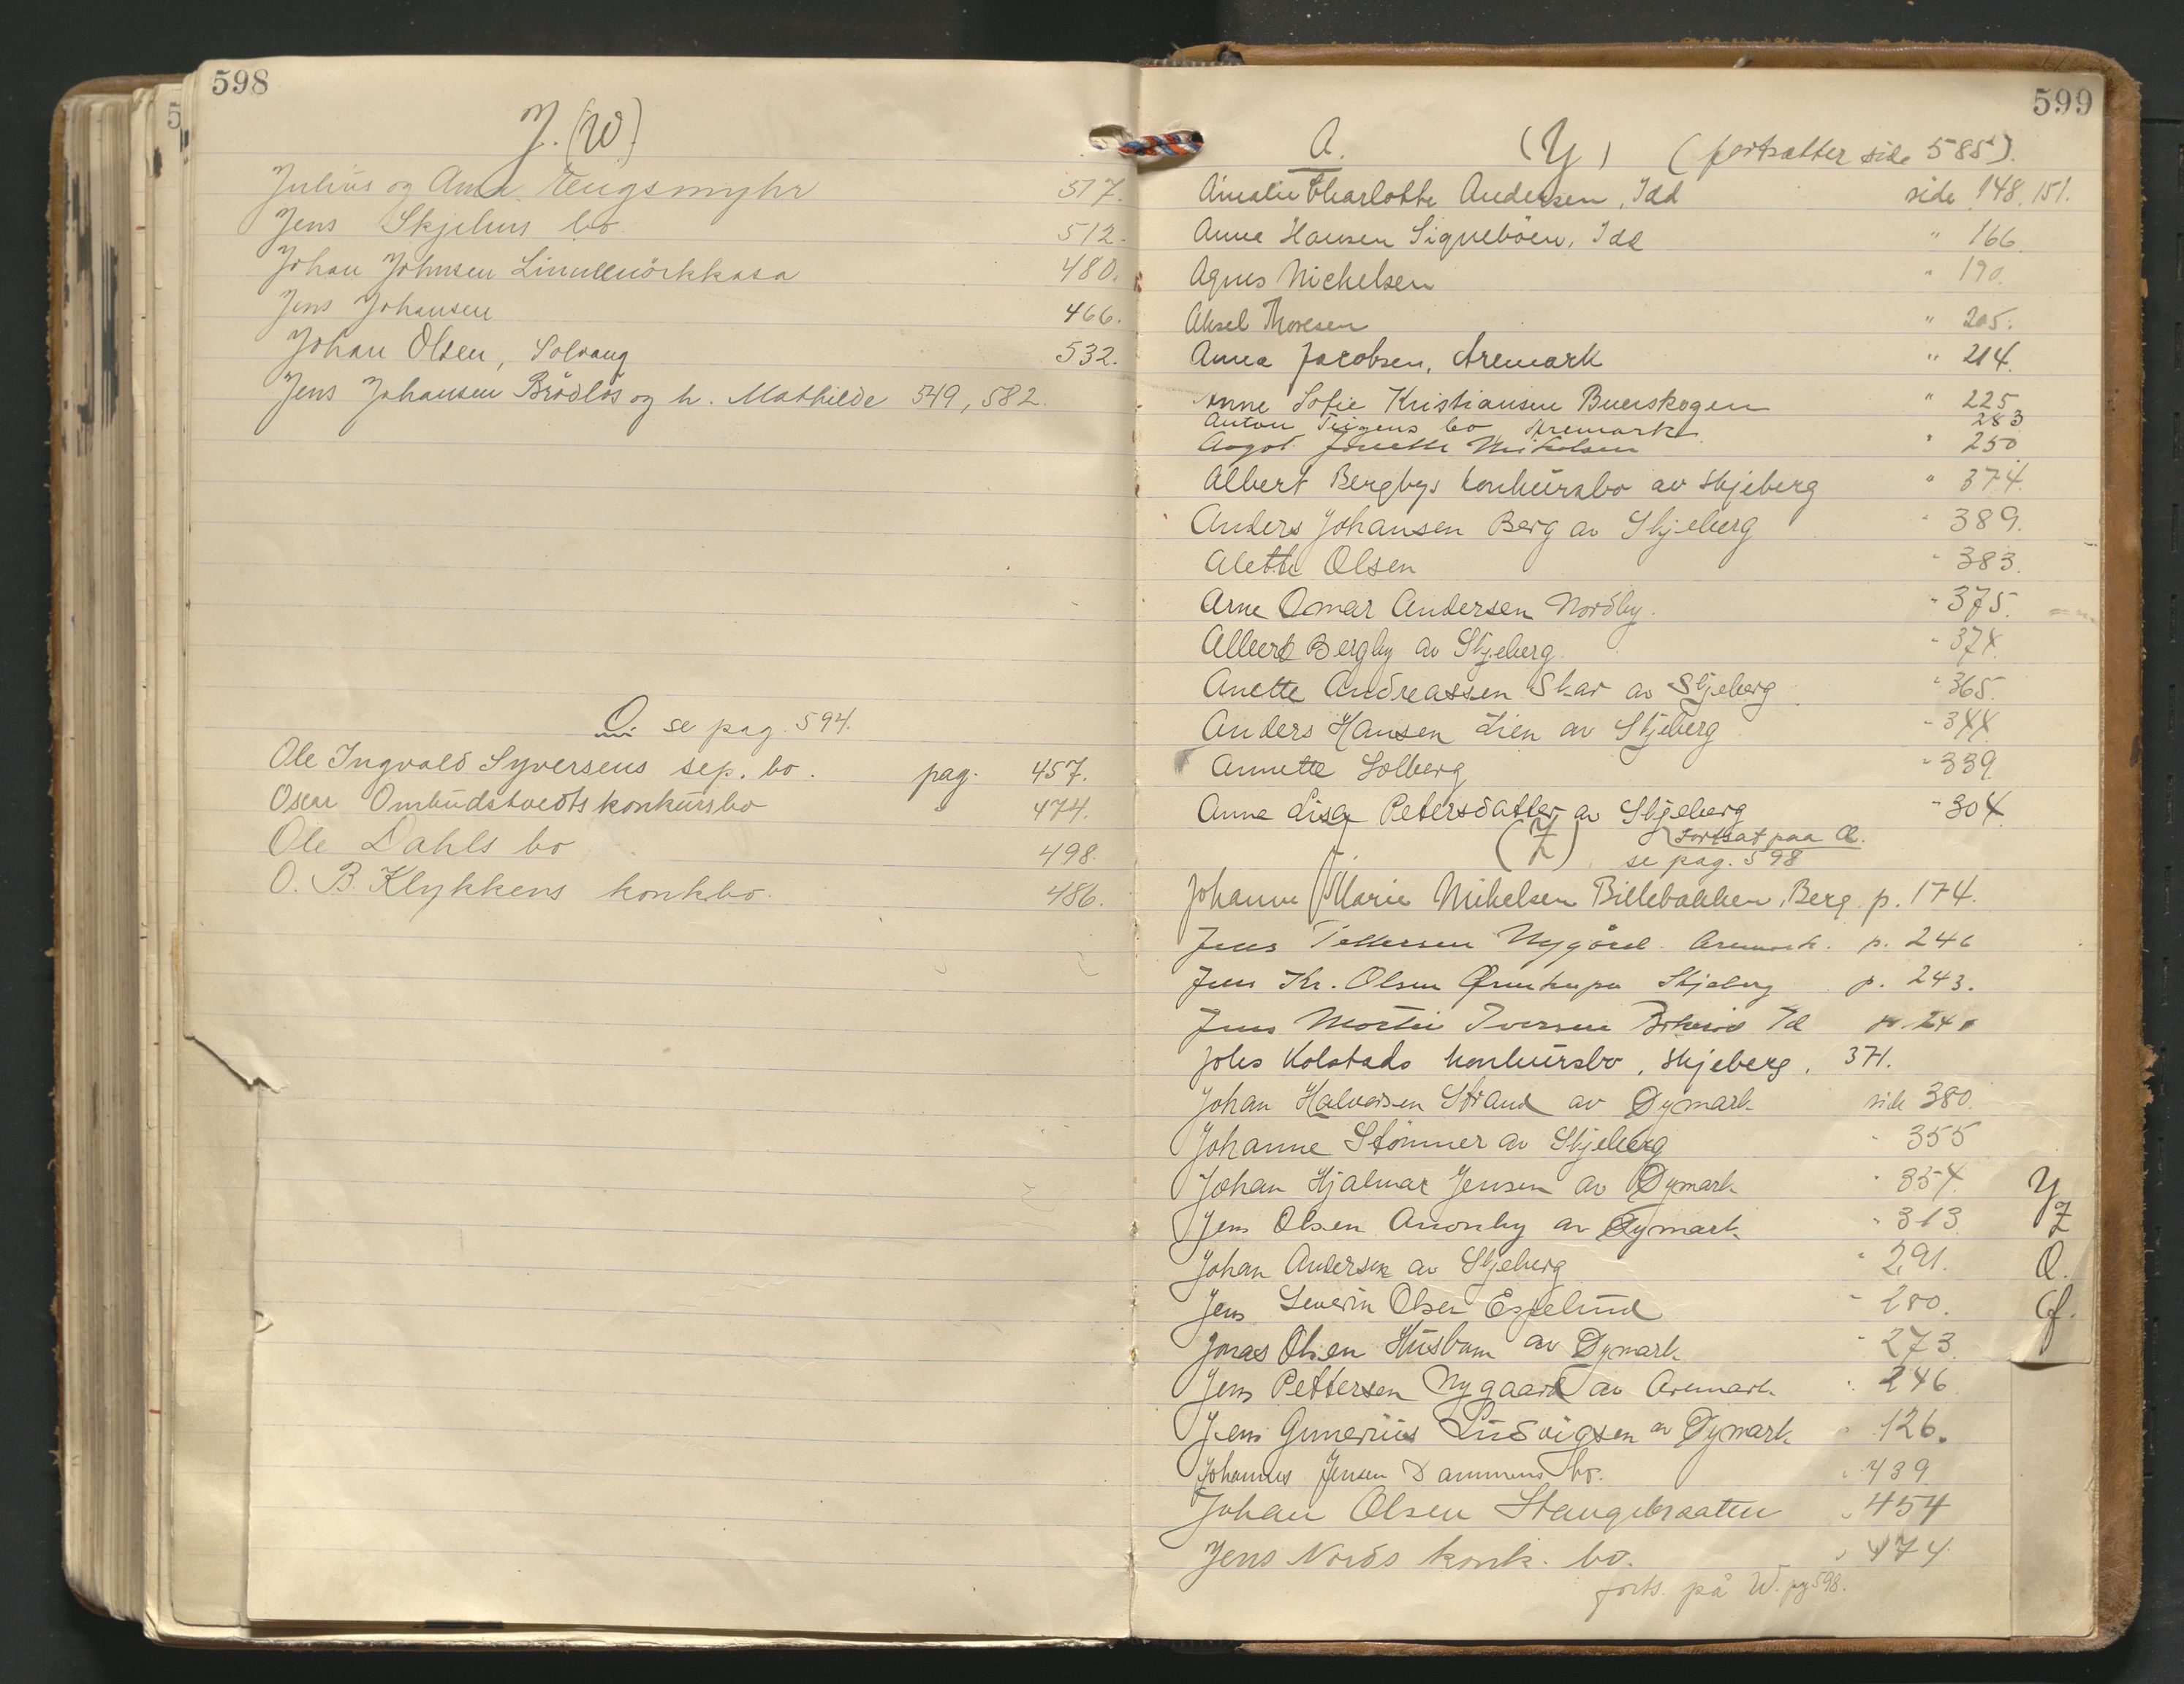 598
J. (W)
Julius og Anna Engsmyhr 517.
Jens Skjehus bo 512.
Johan Johnsen 480.
Jens Johansen 466.
Johan Olsen, Solvang 532.
Jens Johansen Brödlös og h. Mathilde 549, 582.
O. se pag. 594.
Ole Ingvald Syversens sep. bo. pag. 457.
Oscar Ombudstvedts konkursbo " 474.
Ole Dahls bo 498.
O. B. Klykkens konk.bo. 486.
599
A. (Y) (fortsætter side 585).
Amalie Charlotte Andersen, Idd side 148. 151.
Anna Hansen Signeböen, Idd " 166.
Agnes Michelsen " 190.
Aksel Thoresen " 205.
Anna Jacobsen, Aremark " 214.
Anne Sofie Kristiansen Buerskogen " 225
Anton bo Aremark 283
Aagot Mikelsen " 250
Albert Bergbys konkursbo av Skjeberg " 374.
Anders Johansen Berg av Skjeberg " 389.
Alette Olsen " 383.
Arne Omar Andersen Nordby. " 375.
Albert Bergby av Skjeberg " 374.
Anette Andreassen Skar av Skjeberg " 365.
Anders Hansen Lien av Skjeberg " 344.
Annette Solberg " 339.
Anne Lisa Petersdatter av Skjeberg " 304
(Z) Fortsat paa Æ.
J. se pag. 598
Johanne Marie Mikelsen Billebakken, Berg p. 174.
Jens Pettersen Nygård Aremark. p. 246
Jens Kr. Olsen Skjeberg p. 243.
Jens Martin Iversen Id p. 240
Johs Kolstads konkursbo, Skjeberg. 371.
Johan Halvorsen Strand av Øymark side 380.
Johanne Stömner av Skjeberg " 355
Johan Hjalmar Jensen av Øymark " 354.
Jens Olsen av Øymark " 313
Johan Andersen av Skjeberg " 291.
Jens Severin Olsen Espelund " 280.
Jonas Olsen Husbum av Øymark " 273.
Jens Pettersen Nygaard av Aremark " 246
Jens Gunerius Ludvigsen av Øymark " 126.
Johannes Jensen Dammens bo. " 439
Johan Olsen Stangebraaten " 454
Jens Nords konk. bo. " 474
forts. på W. pg 598.
Y
Z
Q.